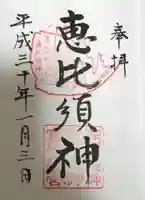 奉拝
恵比須神
平成三十年一月三日